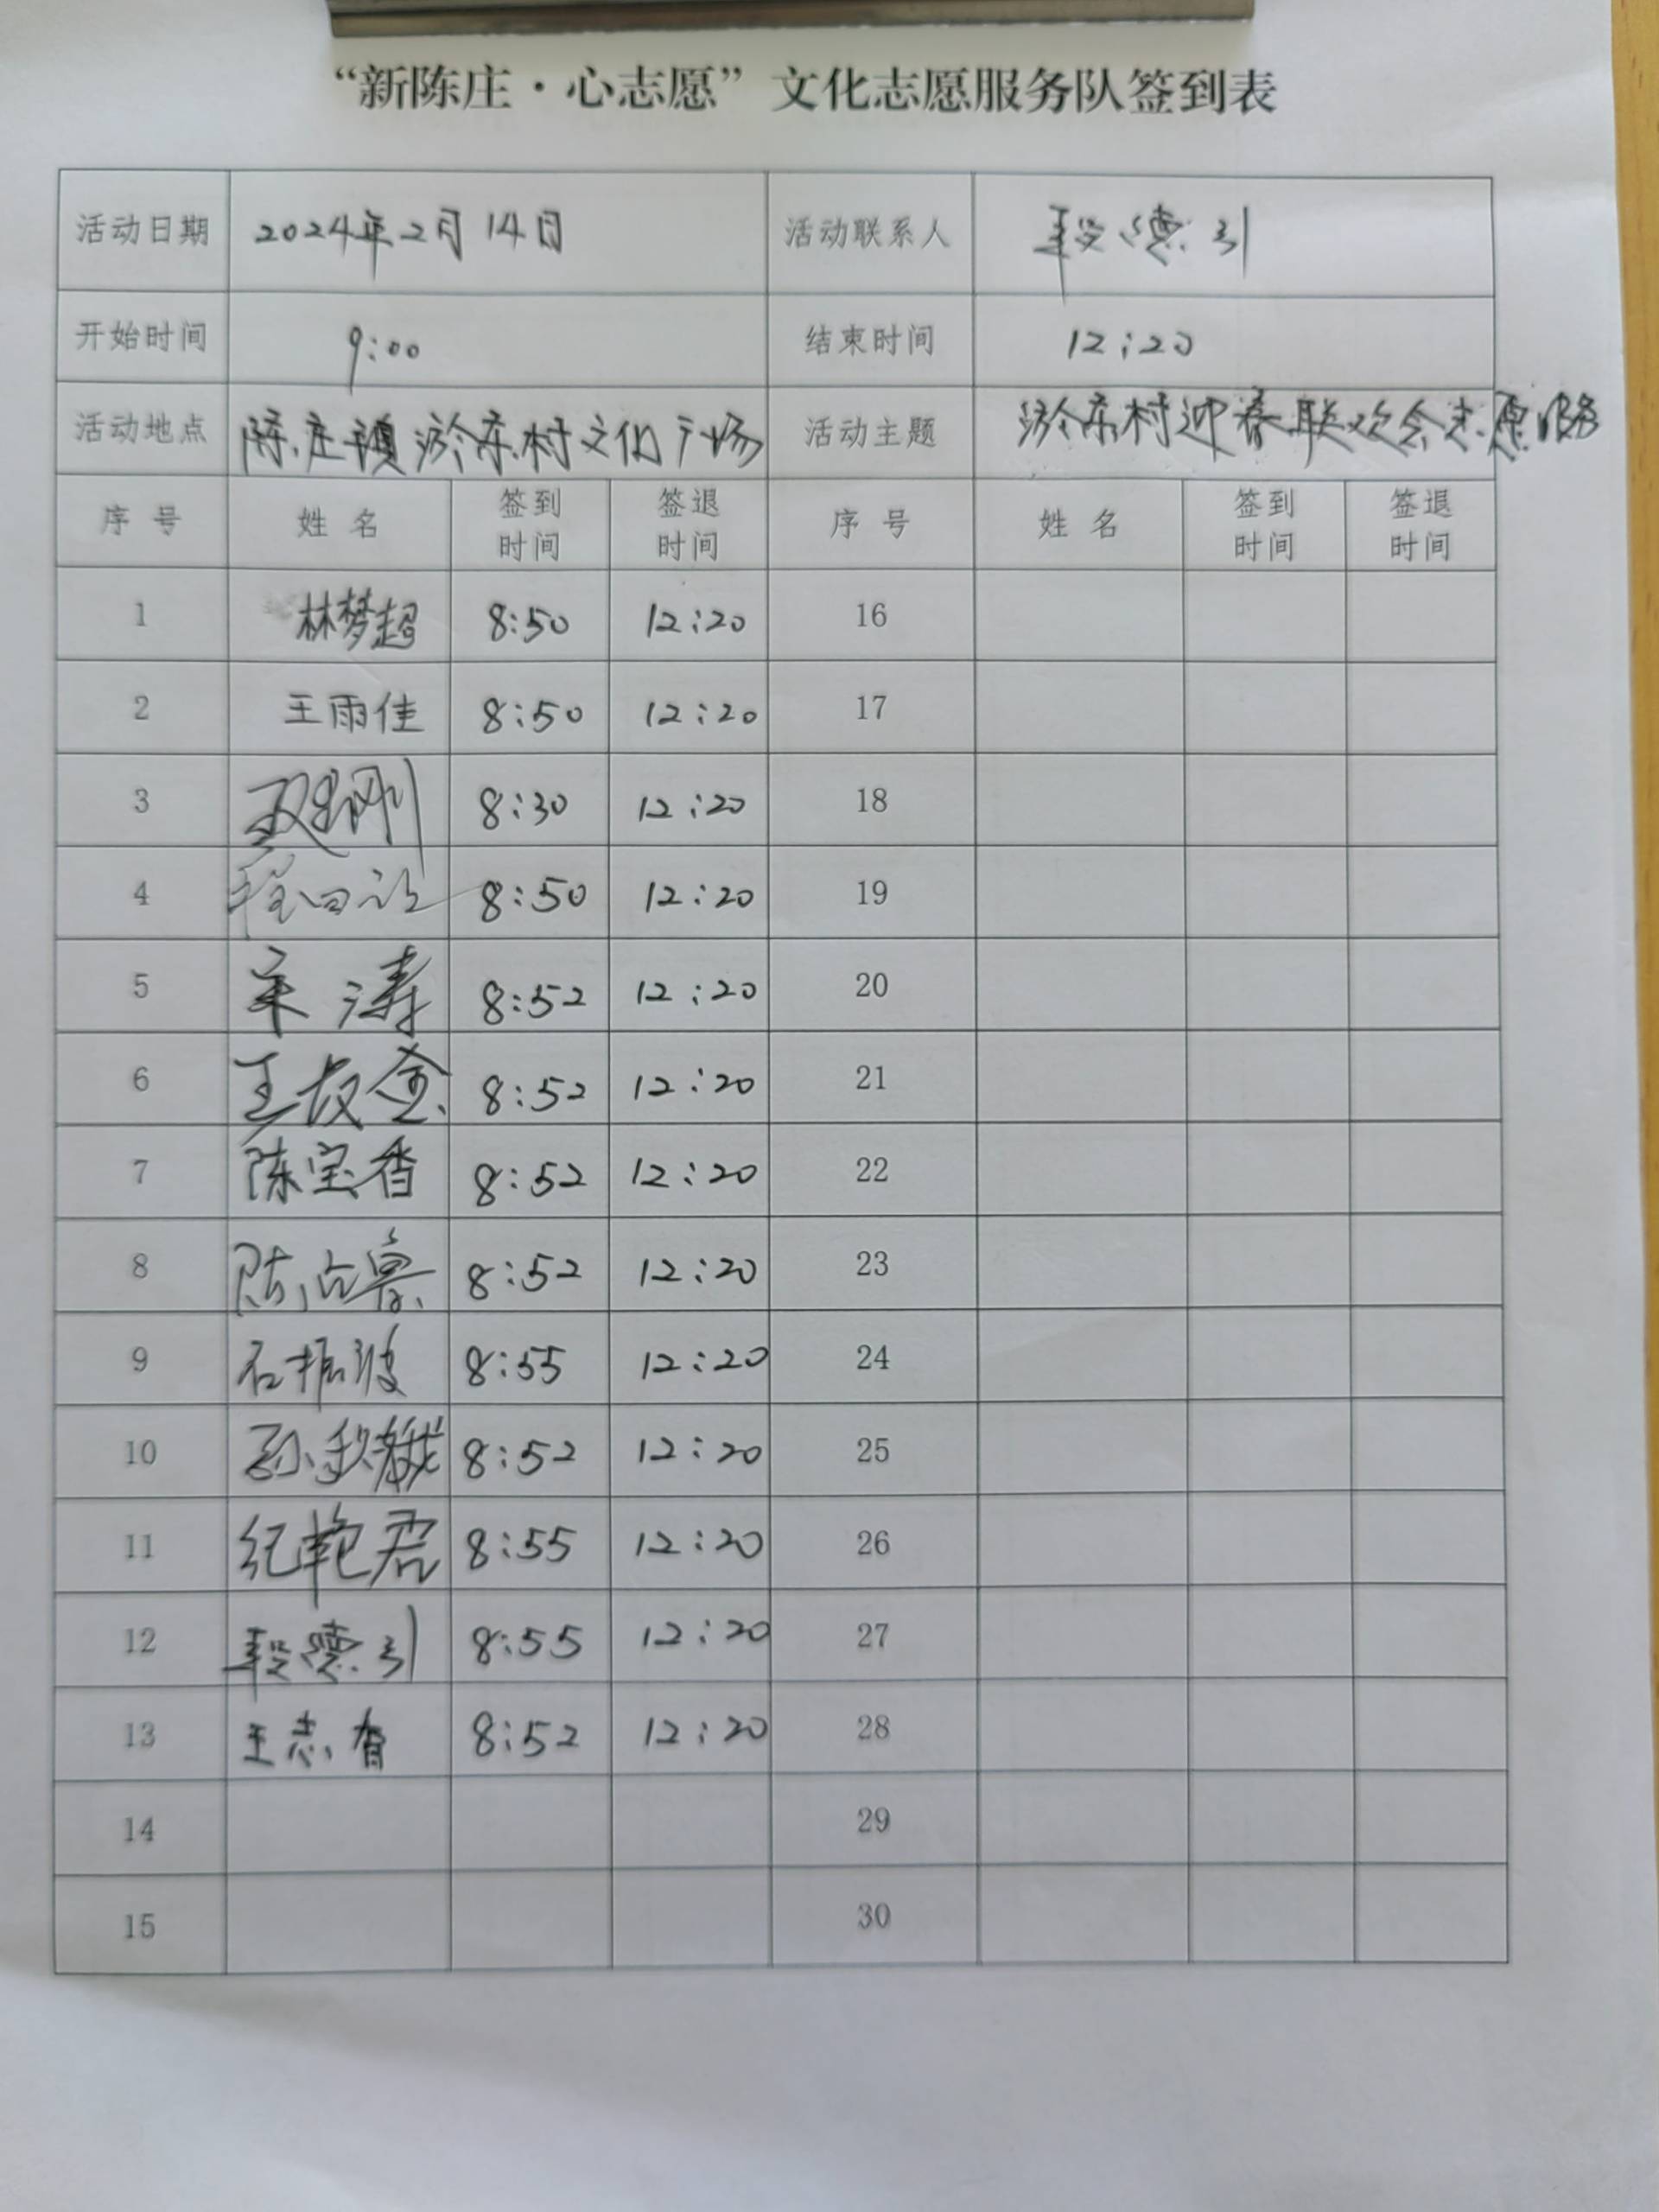 “新陈庄·心志愿”文化志愿服务队签到表
活动日期 2024年2月14日 活动联系人 段德引
开始时间 9:00 结束时间 12:20
活动地点 陈庄镇 东村文化广场 活动主题 东村迎春联欢会志愿服务
序号 姓名 签到时间 签退时间 序号 姓名 签到时间 签退时间
1 林梦超 8:50 12:20 16
2 王雨佳 8:50 12:20 17
3 8:30 12:20 18
4 8:50 12:20 19
5 宋涛 8:52 12:20 20
6 王 金 8:52 12:20 21
7 陈宝香 8:52 12:20 22
8 陈占 8:52 12:20 23
9 石振波 8:55 12:20 24
10 孙秋娥 8:52 12:20 25
11 纪艳君 8:55 12:20 26
12 段德引 8:55 12:20 27
13 王志香 8:52 12:20 28
14 29
15 30